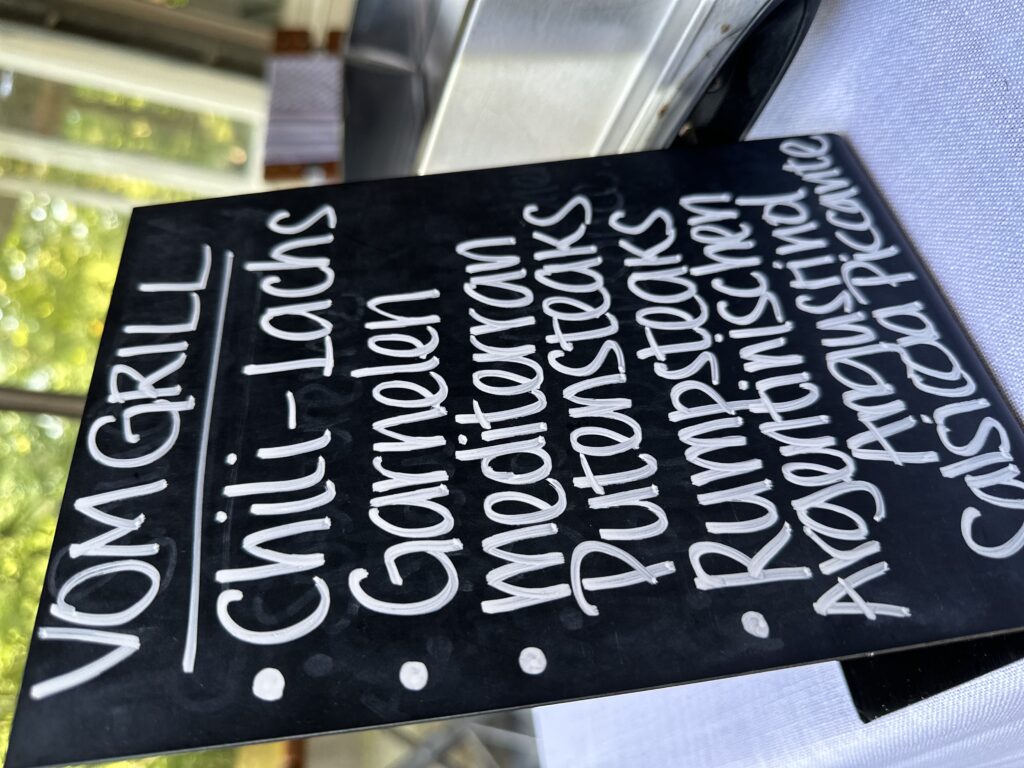 VOM GRILL
• Chili - Lachs
• Garnelen
• mediteran
Putensteaks
• Rumpsteaks
Argentinischen
Angusrind
Salsicca Picante